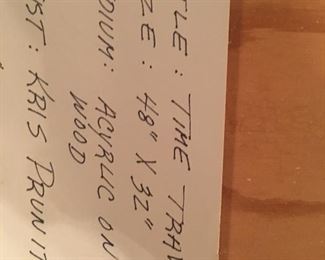 TLE: TIME TRAV
ZE: 48" X 32"
DIUM: ACYRLIC ON
WOOD
IST: KRIS PRUNIT